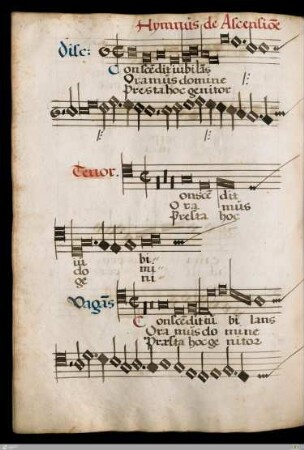 Hymnus de Ascensiõe
Disc:
Conscẽdit iubilãs
Oramus domine
Presta hoc genitor
Tenor.
onscẽ dit
Ora mus
Presta hoc
iu bi
do mi
ge ni
Vagãs
Conscẽdit iu bi lans
Ora mus do mine
Præsta hoc ge nitor